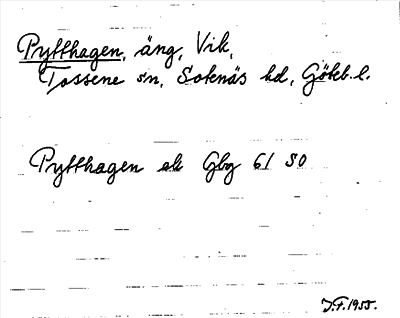 Pytthagen, äng, Vik,
Tossene sn, Sotenäs hd, Göteb. l.
Pytthagen ek Gbg 61 SO
J.F. 1955.